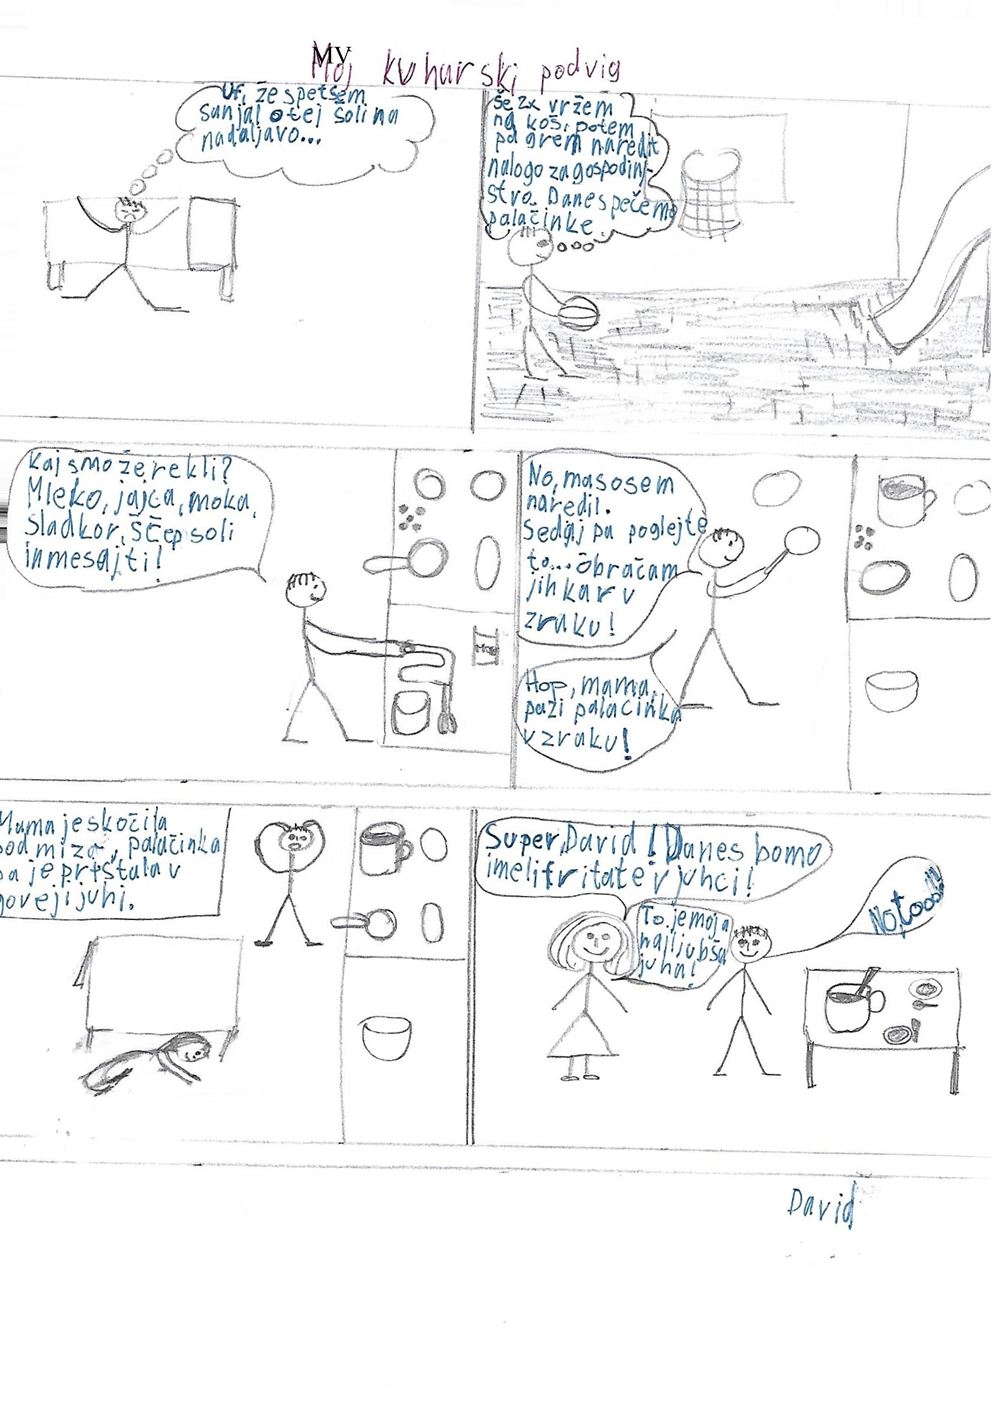 My
Moj kuharski podvig
Uf, že spet sem
sanjal o tej šoli na
nadaljavo...
še 2x vržem
na koš, potem
pa grem naredit
nalogo za gospodinj-
stvo. Danes pečemo
palačinke.
Kaj smo že rekli?
Mleko, jajca, moka,
sladkor, ščep soli
in mesajti!
No, maso sem
naredil.
Sedaj pa poglejte
to... obračam
jih kar v
zraku!
Hop, mama,
pazi palacinka
v zraku!
Mama je skočila
pod mizo, palačinka
pa je pristala v
goveji juhi.
Super, David! Danes bomo
imeli fritate v juhci!
To je moja
najljubša
juha!
No, tooo!!!
David